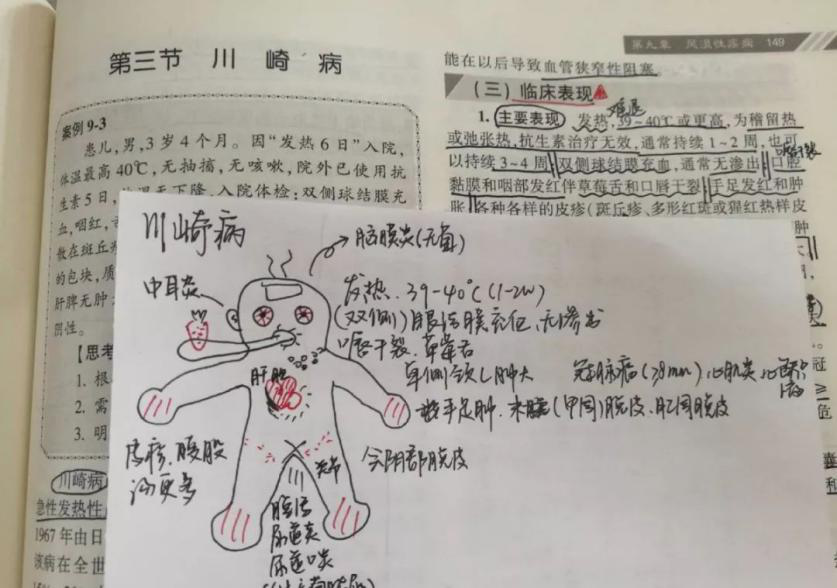 第三节 川崎病
案例 9-3
患儿,男,3岁4个月。因“发热6日”入院,
体温最高40℃,无抽搐,无咳嗽,院外已使用抗
生素5日,
入院体检:双侧球结膜充
血,咽红,
散在斑丘
的包块,质
肝脾无肿
阴性。
【思考
1. 根
2. 需
3. 明
川崎病
急性发热性
1967年由日
该病在全世
第九章 风湿性疾病 149
能在以后导致血管狭窄性阻塞
(三) 临床表现
1. 主要表现 发热,39~40℃或更高,为稽留热
或弛张热,抗生素治疗无效,通常持续1~2周,也可
以持续3~4周 双侧球结膜充血,通常无渗出 口腔
黏膜和咽部发红伴草莓舌和口唇干裂 手足发红和肿
胀 各种各样的皮疹(斑丘疹、多形红斑或猩红热样皮
川崎病
脑膜炎(无菌)
中耳炎
发热. 39-40℃(1-2w)
(双侧)眼结膜充血,无渗出
唇干裂,草莓舌
单侧颈L肿大
冠脉病(≥8mm),心肌炎,心
肝脏
手足肿.
(甲周)脱皮、肛周脱皮
皮疹,腹股
沟更多
关节
会阴部脱皮
腹泻
尿道炎
尿道口炎